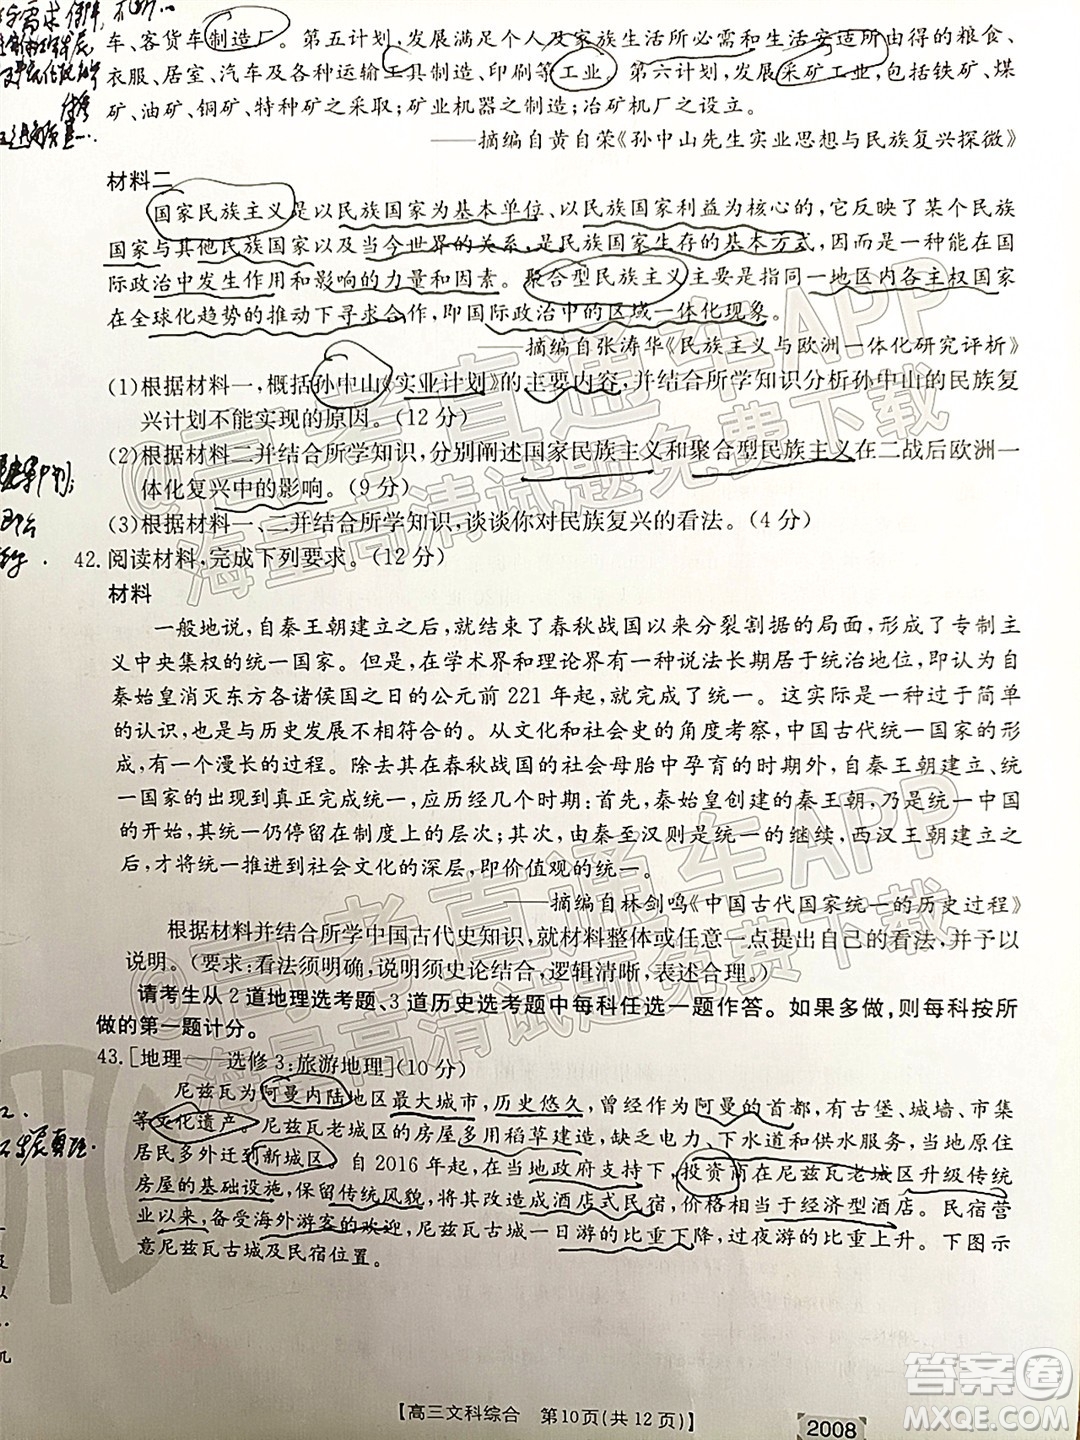 车、客货车制造厂。第五计划,发展满足个人及家族生活所必需和生活安适所由得的粮食、
衣服、居室、汽车及各种运输工具制造、印刷等工业。第六计划,发展采矿工业,包括铁矿、煤
矿、油矿、铜矿、特种矿之采取;矿业机器之制造;冶矿机厂之设立。
——摘编自黄自荣《孙中山先生实业思想与民族复兴探微》
材料二
国家民族主义是以民族国家为基本单位、以民族国家利益为核心的,它反映了某个民族
国家与其他民族国家以及当今世界的关系,是民族国家生存的基本方式,因而是一种能在国
际政治中发生作用和影响的力量和因素。聚合型民族主义主要是指同一地区内各主权国家
在全球化趋势的推动下寻求合作,即国际政治中的区域一体化现象。
——摘编自张涛华《民族主义与欧洲一体化研究评析》
(1)根据材料一,概括孙中山《实业计划》的主要内容,并结合所学知识分析孙中山的民族复
兴计划不能实现的原因。(12分)
(2)根据材料二并结合所学知识,分别阐述国家民族主义和聚合型民族主义在二战后欧洲一
体化复兴中的影响。(9分)
(3)根据材料一、二并结合所学知识,谈谈你对民族复兴的看法。(4分)
42.阅读材料,完成下列要求。(12分)
材料
一般地说,自秦王朝建立之后,就结束了春秋战国以来分裂割据的局面,形成了专制主
义中央集权的统一国家。但是,在学术界和理论界有一种说法长期居于统治地位,即认为自
秦始皇消灭东方各诸侯国之日的公元前221年起,就完成了统一。这实际是一种过于简单
的认识,是与历史发展不相符合的。从文化和社会史的角度考察,中国古代统一国家的形
成,有一个漫长的过程。除去其在春秋战国的社会母胎中孕育的时期外,自秦王朝建立、统
一国家的出现到真正完成统一,应历经两个时期:首先,秦始皇创建的秦王朝,乃是统一中国
的开始,其统一仍停留在制度上的层次;其次,由秦至汉则是统一的继续,西汉王朝建立之
后,才将统一推进到社会文化的深层,即价值观的统一。
——摘编自林剑鸣《中国古代国家统一的历史过程》
根据材料并结合所学中国古代史知识,就材料整体或任意一点提出自己的看法,并予以
说明。(要求:看法须明确,说明须史论结合,逻辑清晰,表述合理。)
请考生从2道地理选考题、3道历史选考题中每科任选一题作答。如果多做,则每科按所
做的第一题计分。
43.[地理——选修3:旅游地理](10分)
尼兹瓦为阿曼内陆地区最大城市,历史悠久,曾经作为阿曼的首都,有古堡、城墙、市集
等文化遗产。尼兹瓦老城区的房屋多用稻草建造,缺乏电力、下水道和供水服务,当地原住
居民多外迁到新城区。自2016年起,在当地政府支持下,投资商在尼兹瓦老城区升级传统
房屋的基础设施,保留传统风貌,将其改造成酒店式民宿,价格相当于经济型酒店。民宿营
业以来,备受海外游客的欢迎,尼兹瓦古城一日游的比重下降,过夜游的比重上升。下图示
意尼兹瓦古城及民宿位置。
【高三文科综合 第10页(共12页)】
2008
答案卷
MXQE.COM
@高考直通车APP
海量高清试题免费下载
@高考直通车APP
海量高清试题免费下载